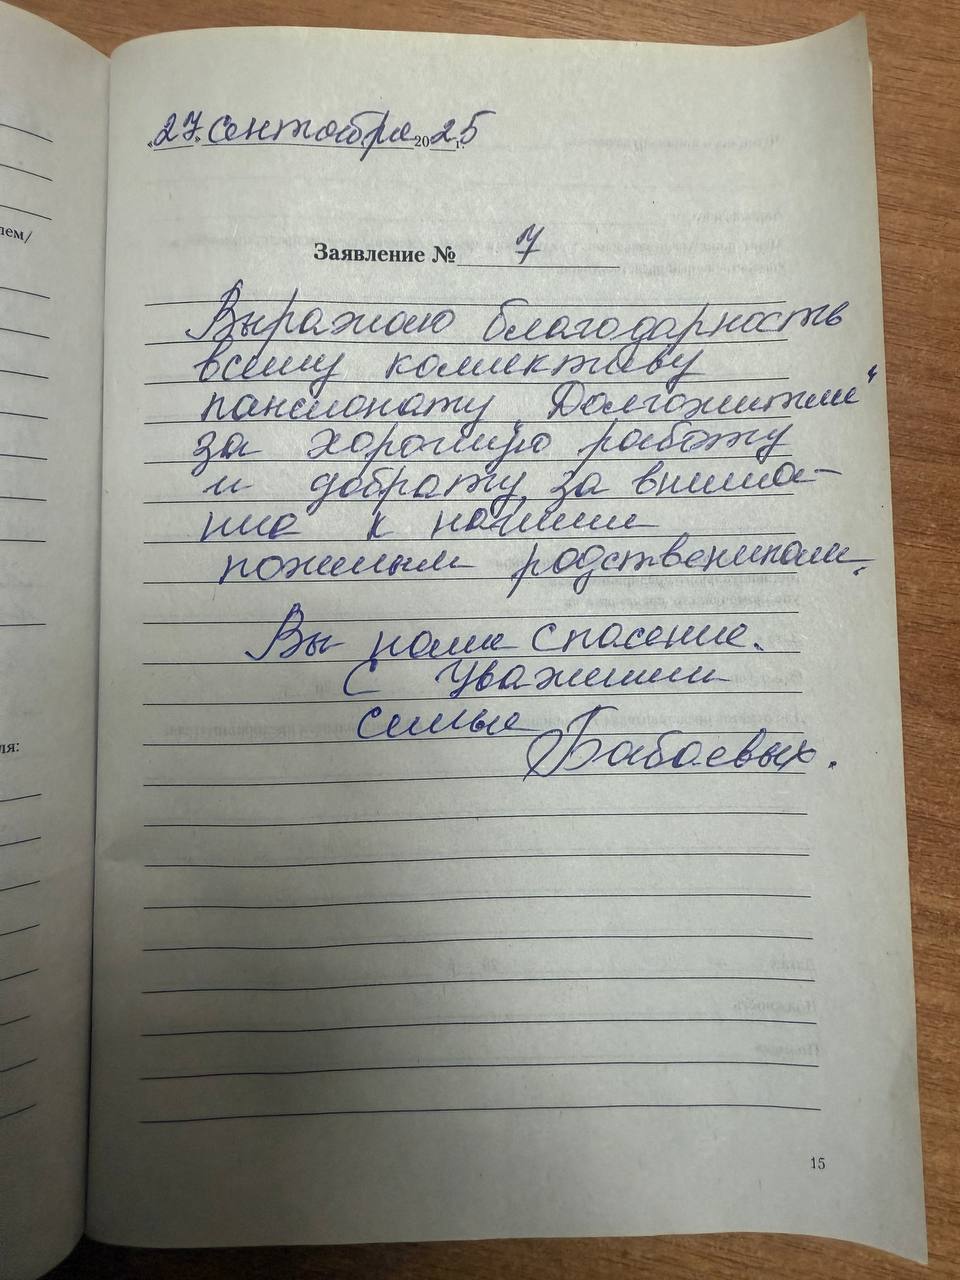 лем/
ля:
«27» Сентября 2025 г.
Заявление № 7
Выражаю благодарность
всему коллективу
пансионату „Долгожители“
за хорошую работу
и доброту, за внима-
ние к нашим
пожилым родственикам.
Вы наше спасение.
С Уважением
семья
Бабаевых.
15